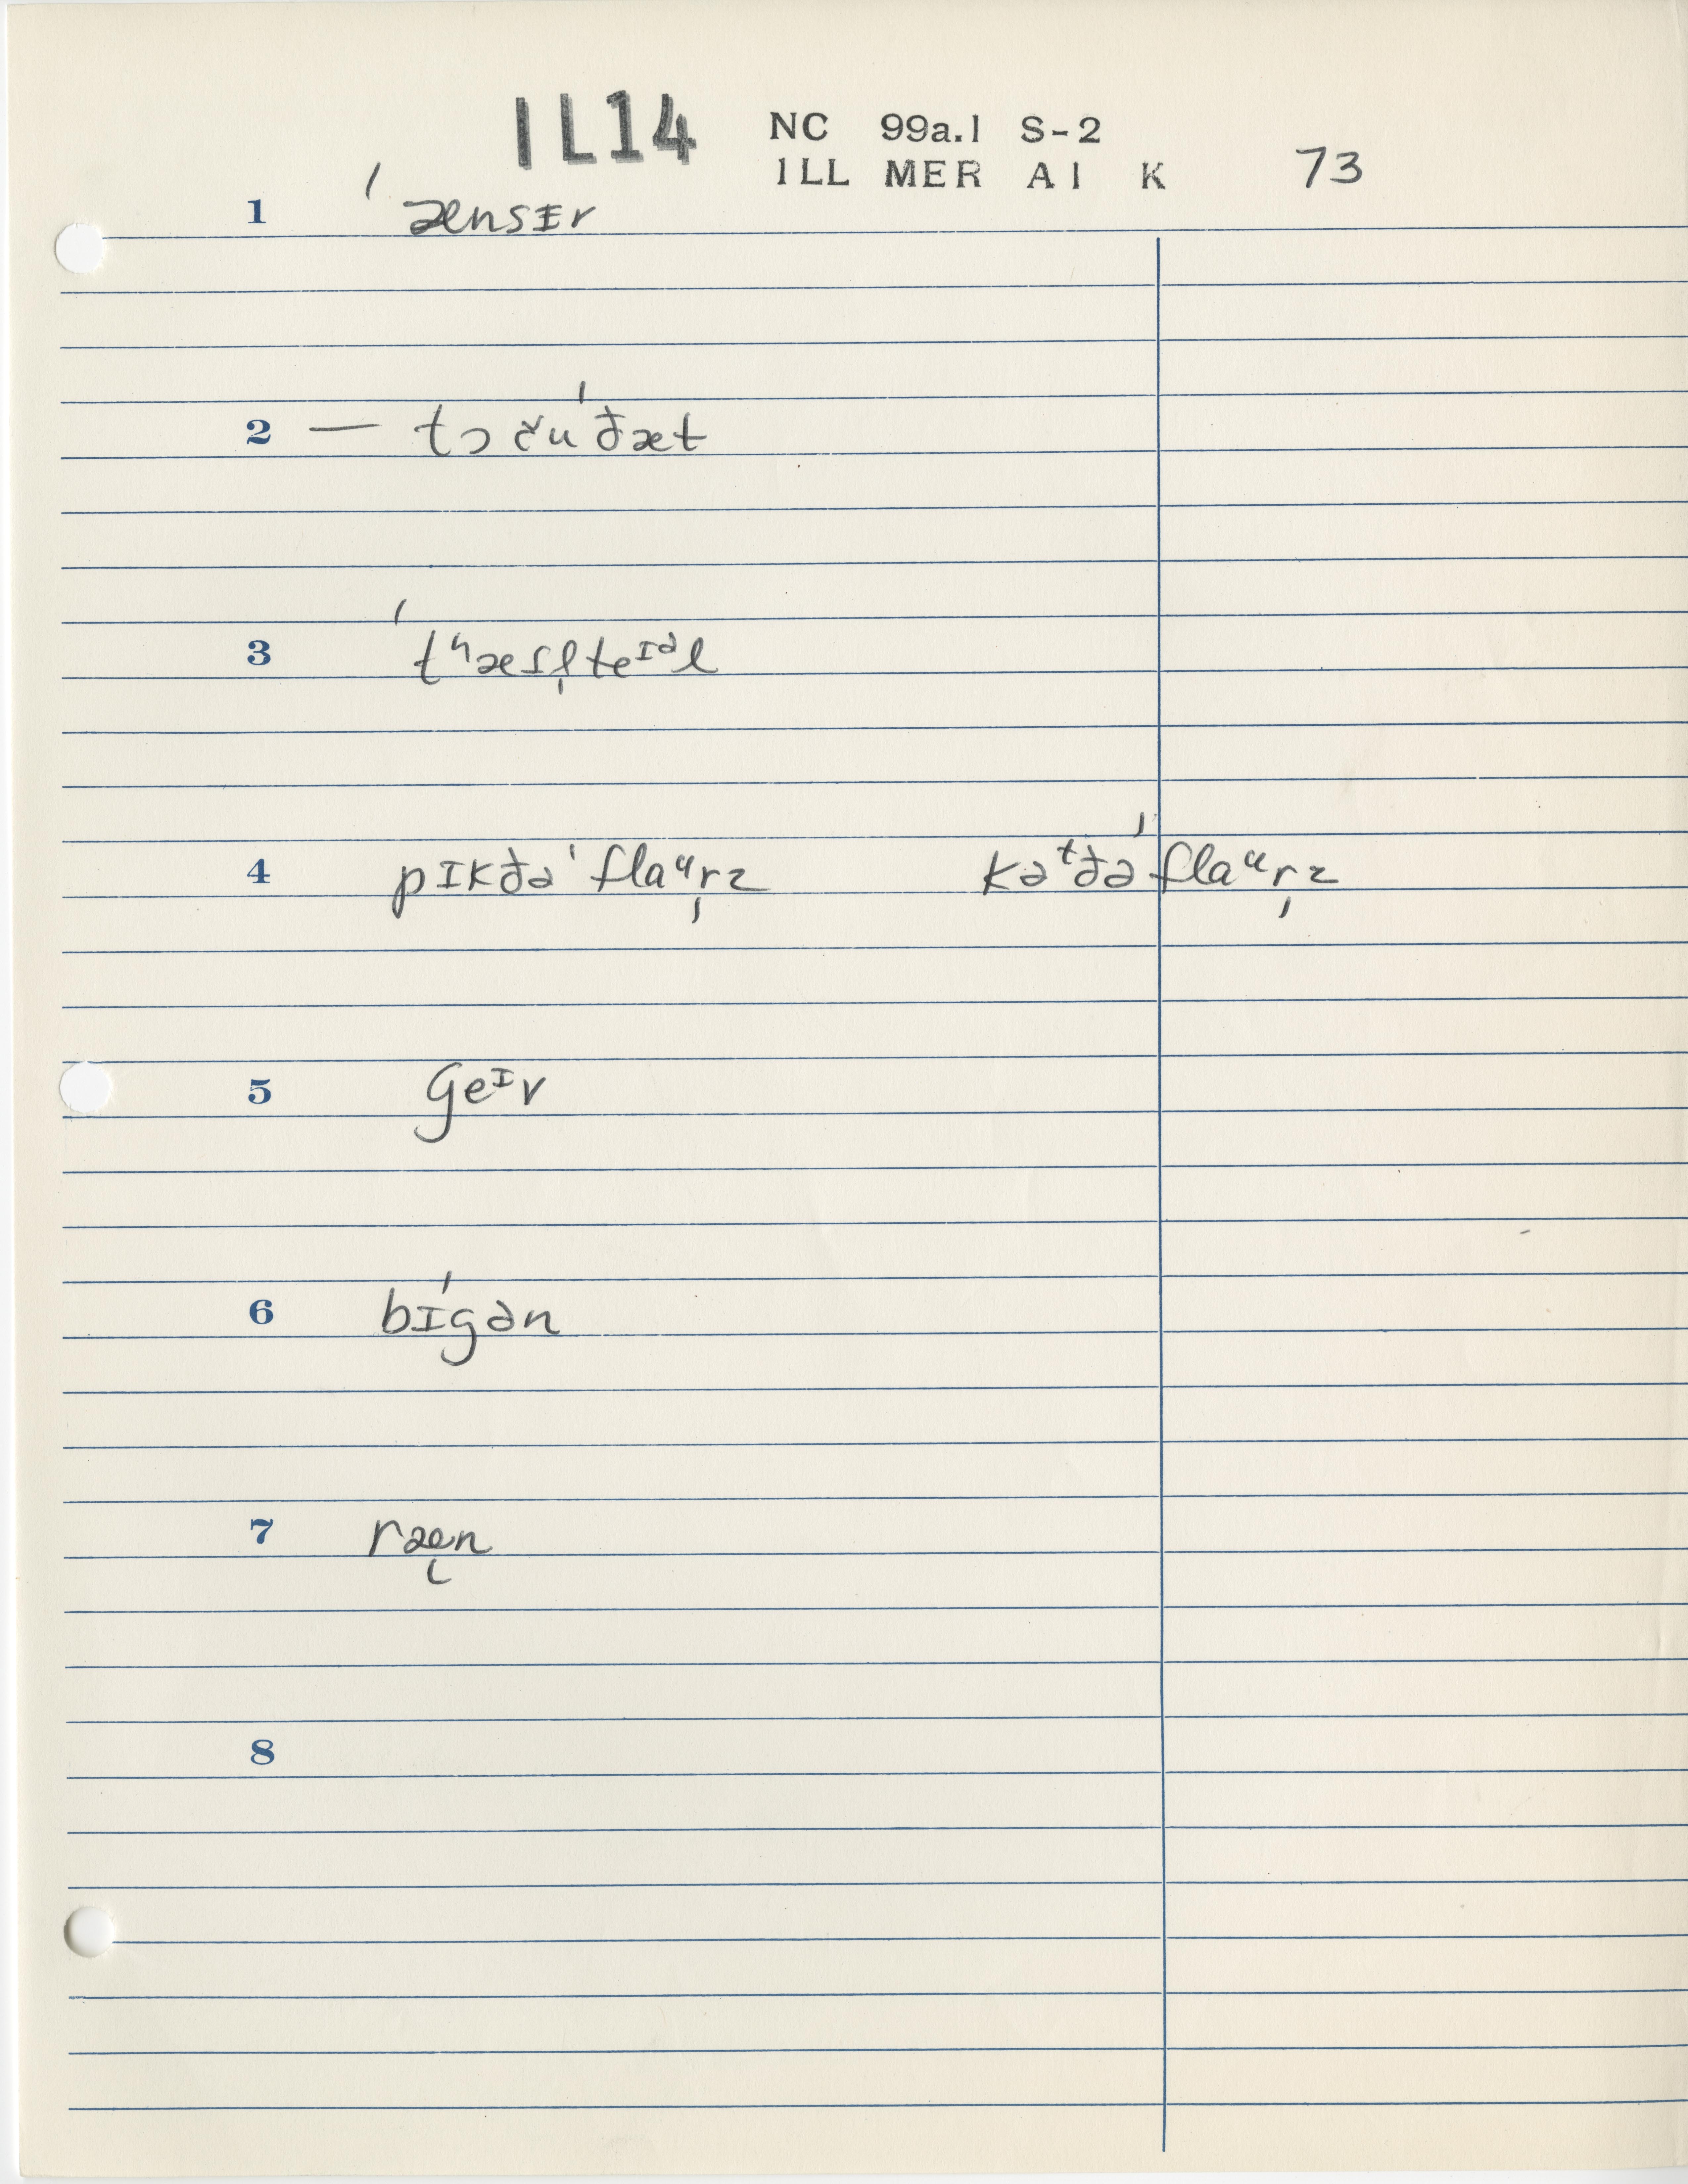 IL14 NC 99a.1 S-2
ILL MER A1 K 73
1 ˈænsɪr
2 — tɔčuˈðæt
3 ˈtʰæsl̩teɪᵊl
4 pɪkðəˈflaᵘr̩z kəᵗðəˈflaᵘr̩z
5 geᶦv
6 bɪˈgən
7 ræ̨n
8